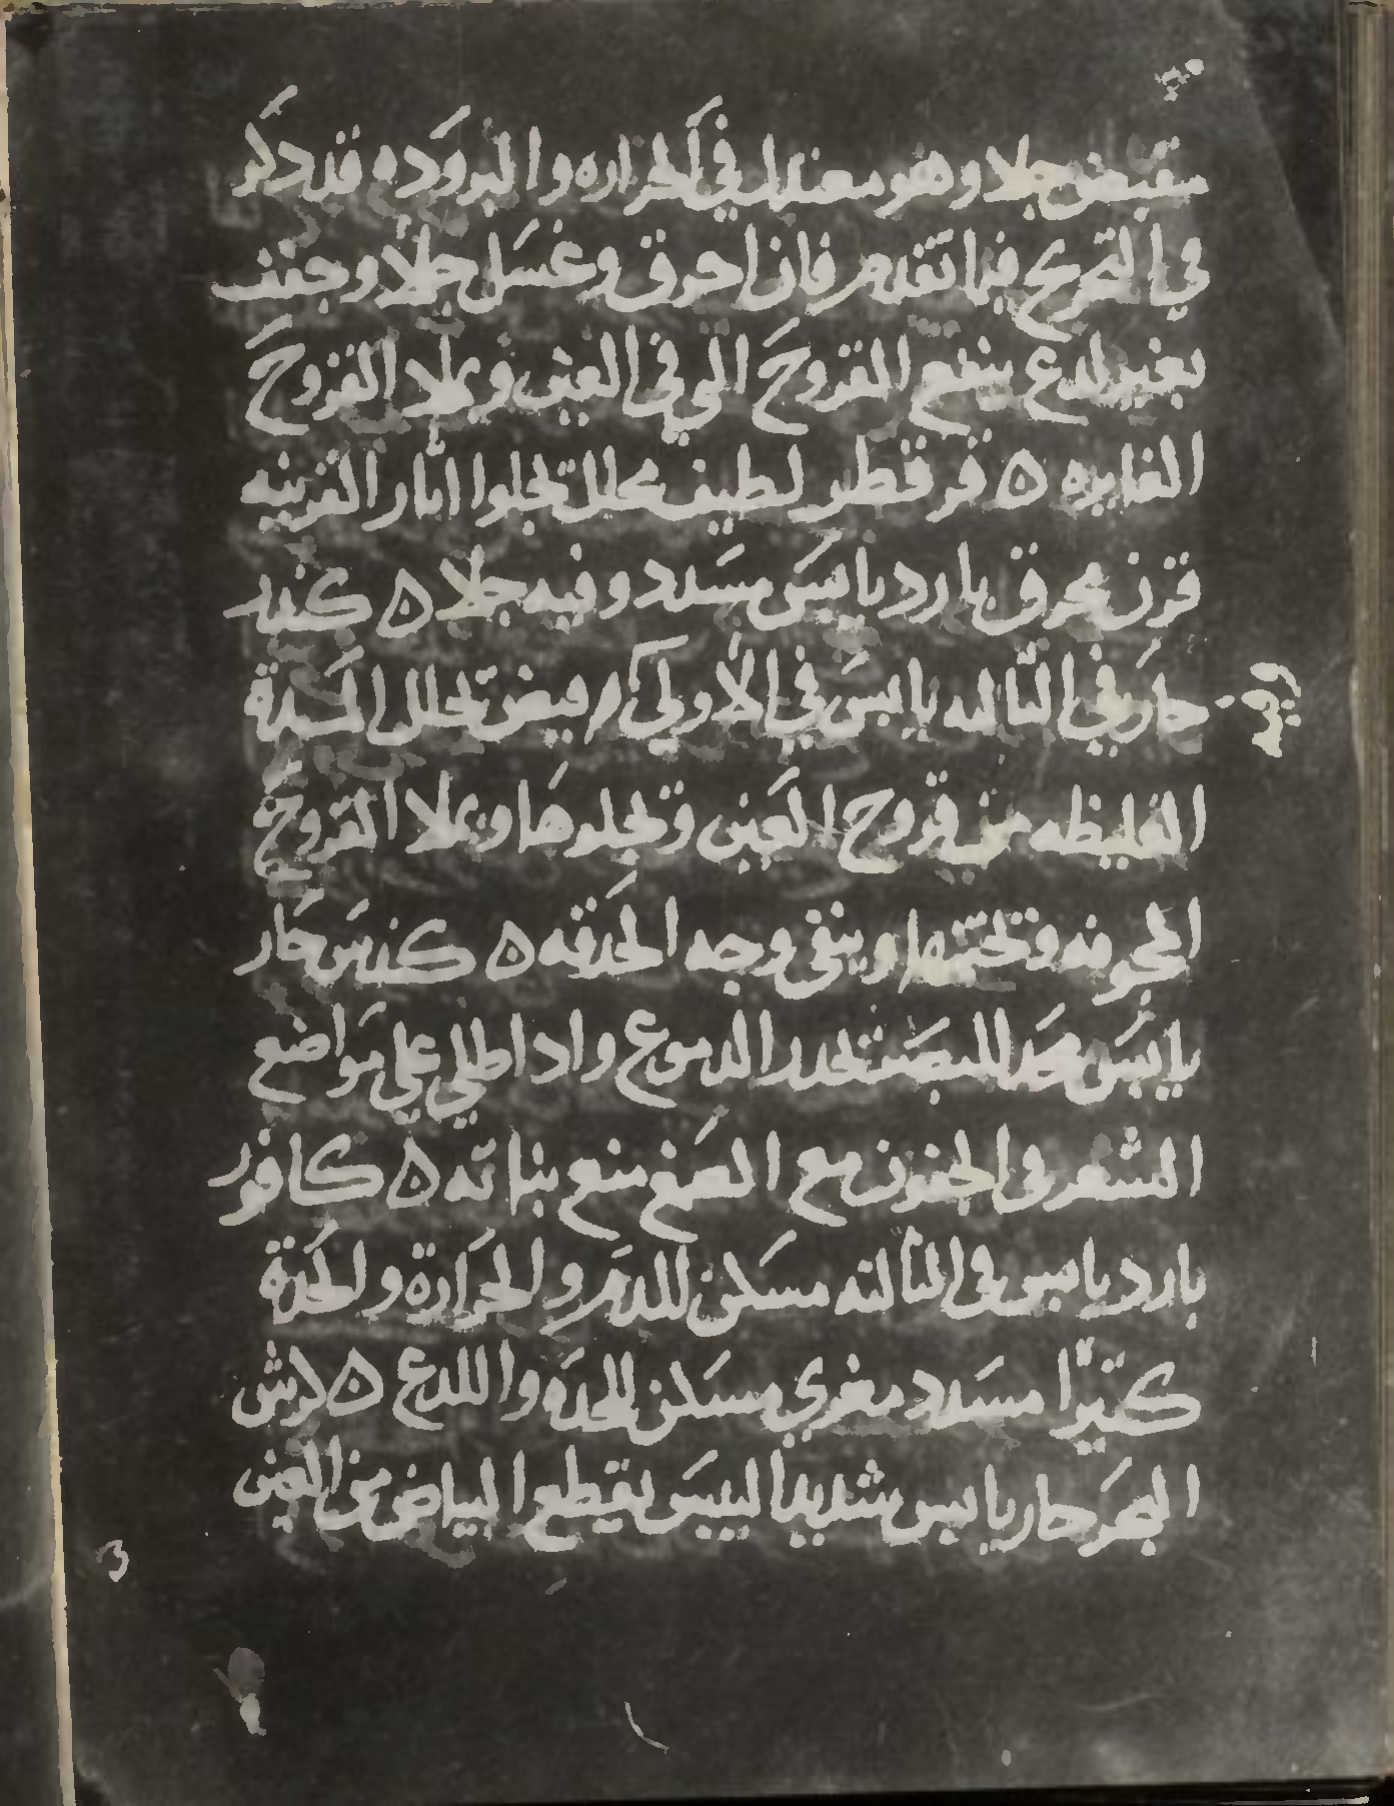 يقبض جلا وهو معتدل في الحراره والبروده قد ذكر
في التخريج فيما تقدم فان احرق وغسل جلا وجفف
بغير لدع ينفع القروح التي في العين ويملا القروح
الغايره ه قرقطر لطيف محلل تجلوا اثار القرنيه
قرن محرق بارد يابس مسدد وفيه جلا ه كندر
حار في الثالثه يابس في الاولي ابيض تحلل المدة
الغليظه من قروح العين وتجلوها ويملا القروح
المجوفه وتختمها وينقى وجه الحدقه ه كندس حار
يابس للبصر تحدر الدموع واذا طلي علي مواضع
الشعر في الجفون مع الصمغ منع نباته ه كافور
بارد يابس في الثالثه مسكن للدم والحرارة والحدة
كثيرا مسدد مغري مسكن للحده واللدع ه
البحر حار يابس شديد اليبس يقطع البياض من العين